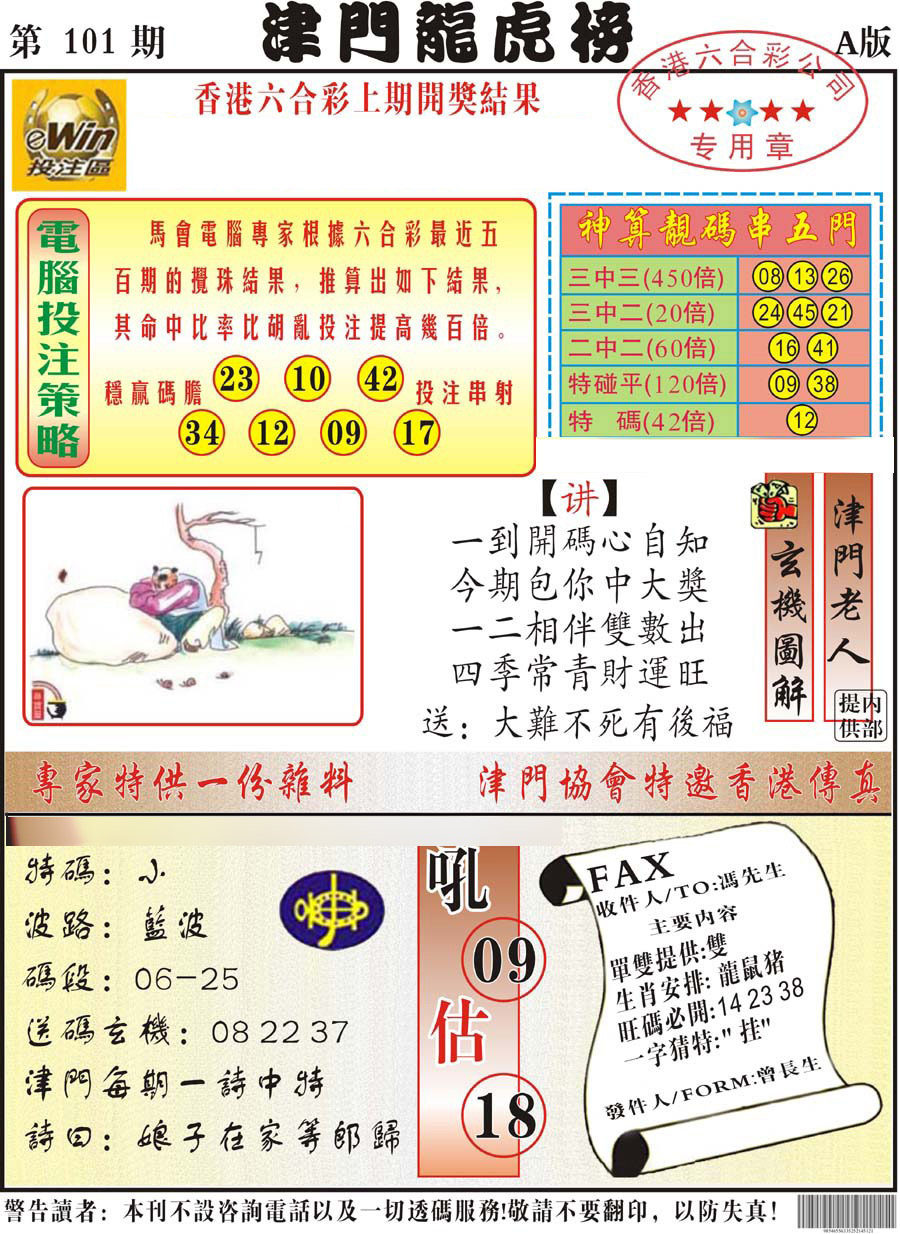 第 101 期
津門龍虎榜
A版
香港六合彩上期開獎結果
香港六合彩公司
★★★★
专用章
eWin
投注區
電腦投注策略
馬會電腦專家根據六合彩最近五
百期的攪珠結果，推算出如下結果，
其命中比率比胡亂投注提高幾百倍。
穩贏碼膽 23 10 42 投注串射
34 12 09 17
神算靚碼串五門
三中三(450倍) 08 13 26
三中二(20倍) 24 45 21
二中二(60倍) 16 41
特碰平(120倍) 09 38
特 碼(42倍) 12
【讲】
一到開碼心自知
今期包你中大獎
一二相伴雙數出
四季常青財運旺
送：大難不死有後福
玄機圖解
津門老人
內部提供
專家特供一份雜料
津門協會特邀香港傳真
特碼：小
波路：藍波
碼段：06-25
送碼玄機：08 22 37
津門每期一詩中特
詩曰：娘子在家等郎歸
吼
09
估
18
FAX
收件人/TO:馮先生
主要内容
單雙提供:雙
生肖安排:龍鼠猪
旺碼必開:14 23 38
一字猜特:"挂"
發件人/FORM:曾長生
警告讀者：本刊不設咨詢電話以及一切透碼服務!敬請不要翻印，以防失真!